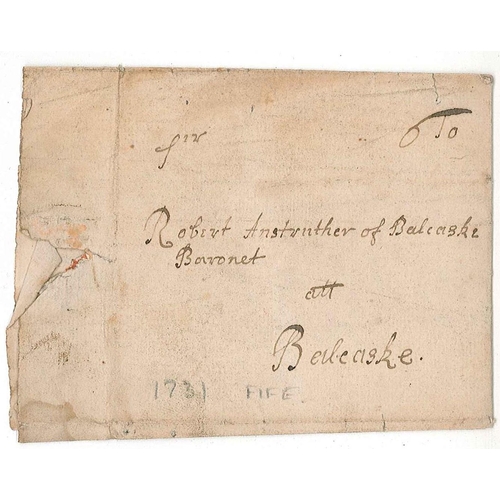 To
Sir
Robert Anstruther of Balcaskie
Baronet
att
Balcaske.
1731 FIFE.